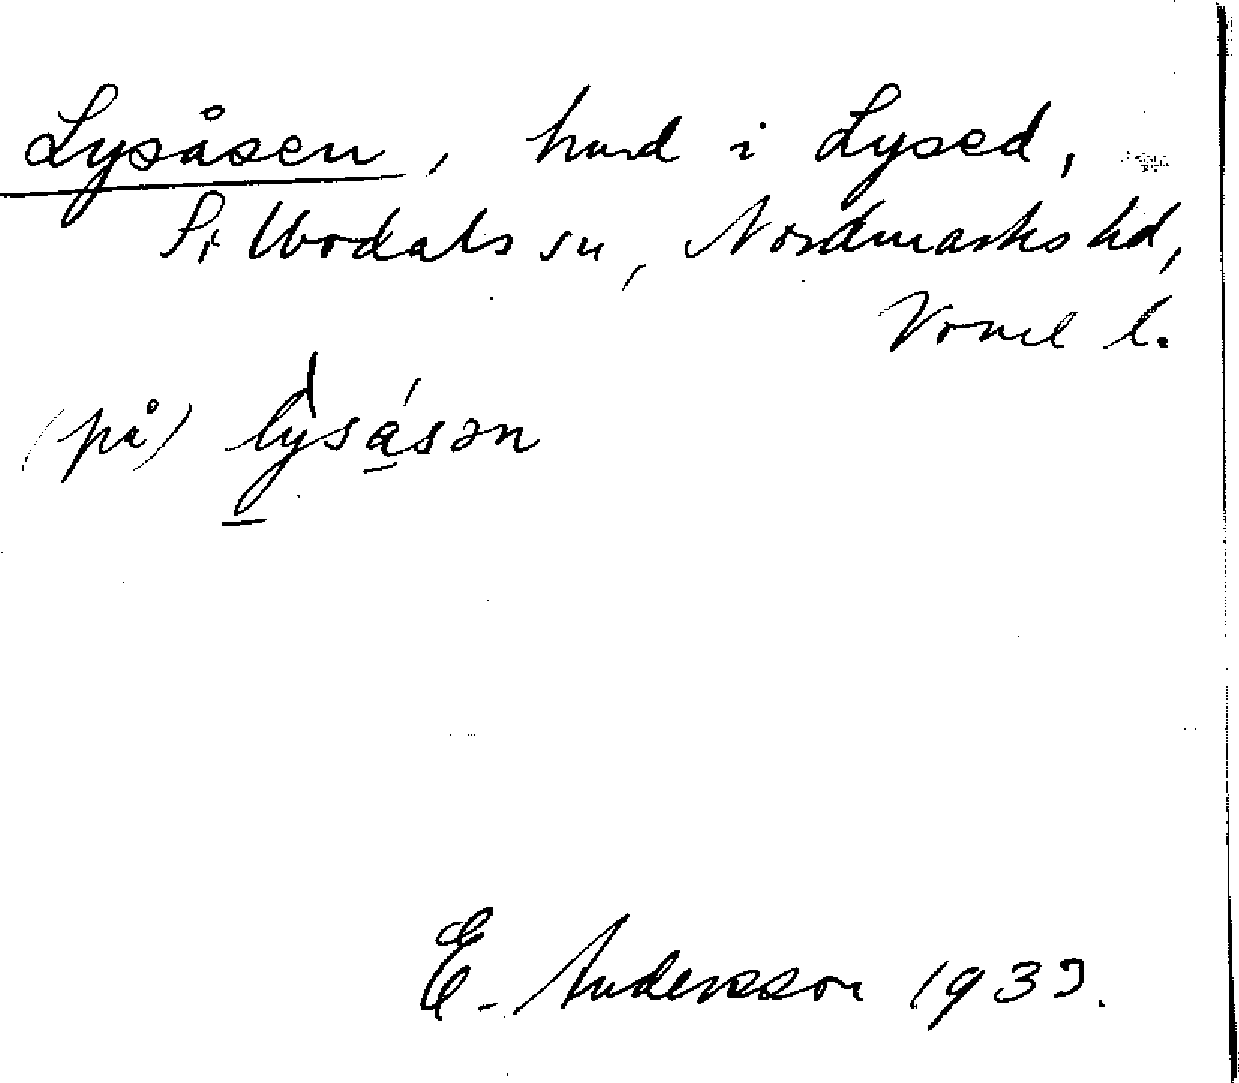 Lysåsen, hmd i Lysed,
V. Vvodals sn, Nordmarks hd,
Vrml l.
(på) lysásən
E. Andersson 1933.